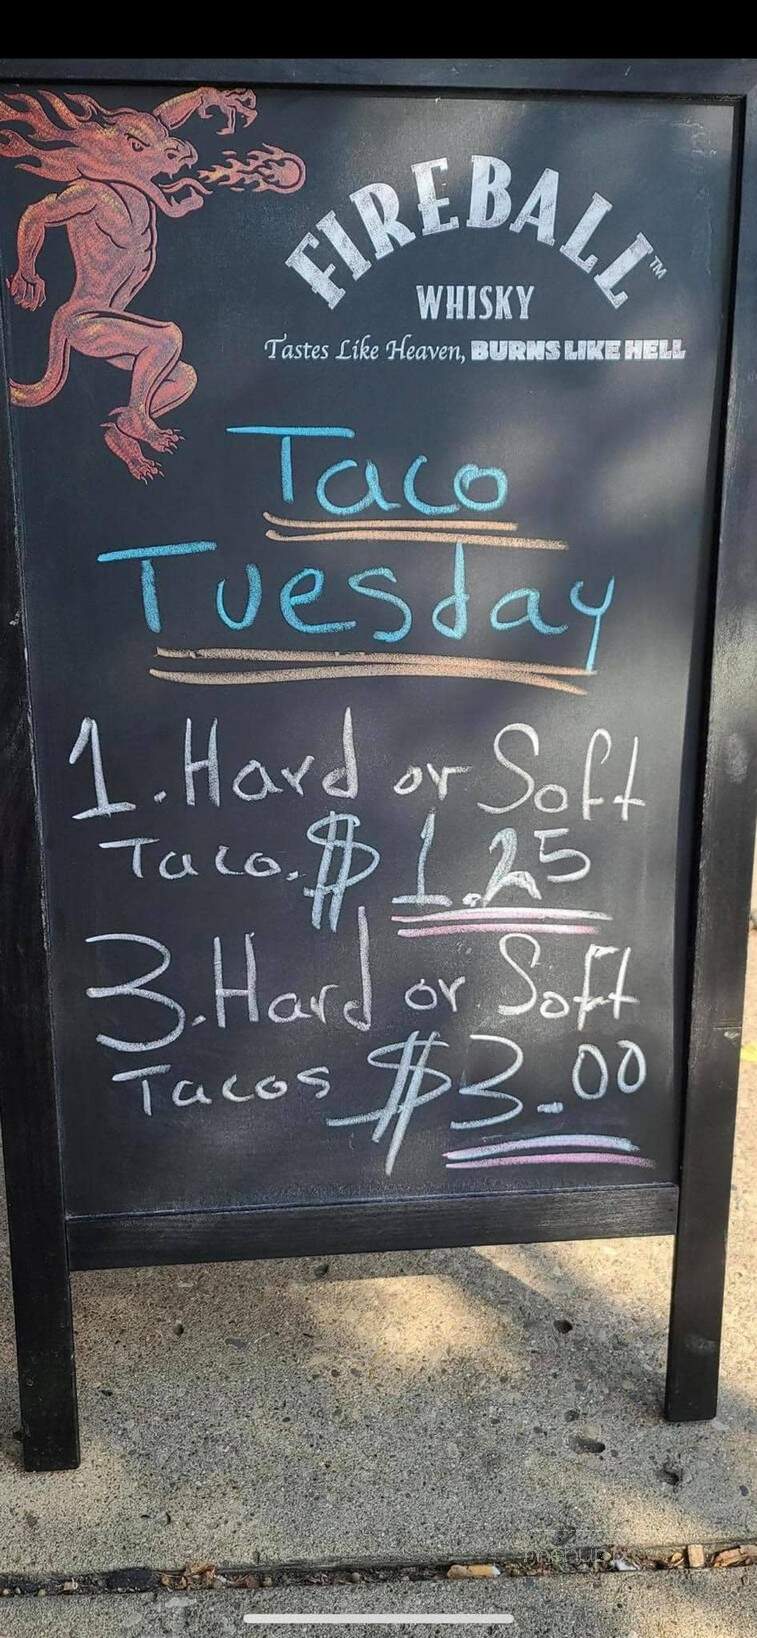 FIREBALL™
WHISKY
Tastes Like Heaven, BURNS LIKE HELL
Taco
Tuesday
1. Hard or Soft
Taco. $1.25
3. Hard or Soft
Tacos $3.00